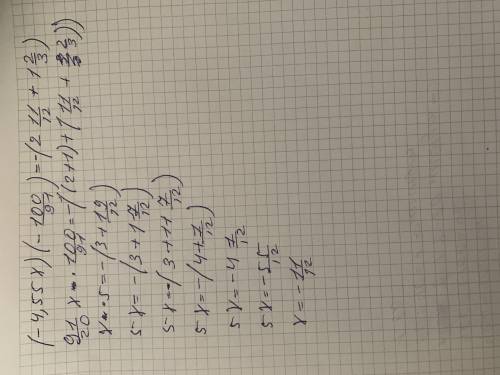 (-4,55x)(-100/91)=-(2 11/12+1 2/3)
91/20 x·100/91=-((2+1)+(11/12+2/3))
x·5=-(3+19/12)
5x=-(3+1 7/12)
5x=-(3+1+7/12)
5x=-(4+7/12)
5x=-4 7/12
5x=-55/12
x=-11/12